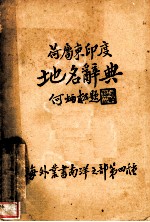 荷屬東印度
地名辭典
何炳松題
海外叢書南洋之部第四種